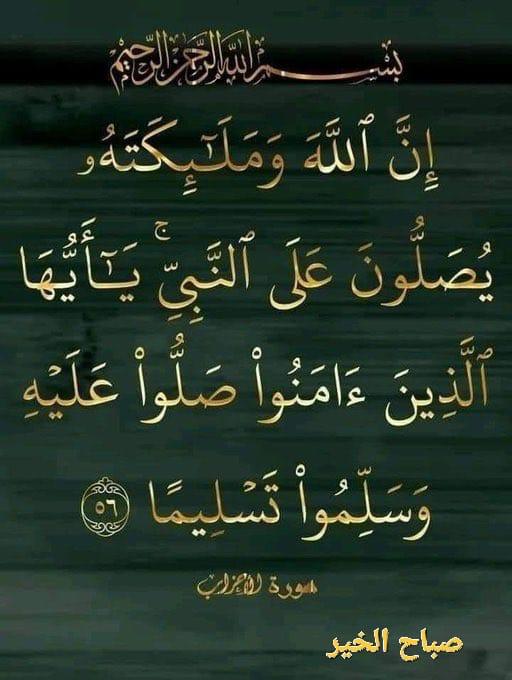 بسم الله الرحمن الرحيم
إِنَّ ٱللَّهَ وَمَلَـٰٓئِكَتَهُۥ
يُصَلُّونَ عَلَى ٱلنَّبِىِّ ۚ يَـٰٓأَيُّهَا
ٱلَّذِينَ ءَامَنُوا۟ صَلُّوا۟ عَلَيْهِ
وَسَلِّمُوا۟ تَسْلِيمًا ٥٦
سورة الأحزاب
صباح الخير